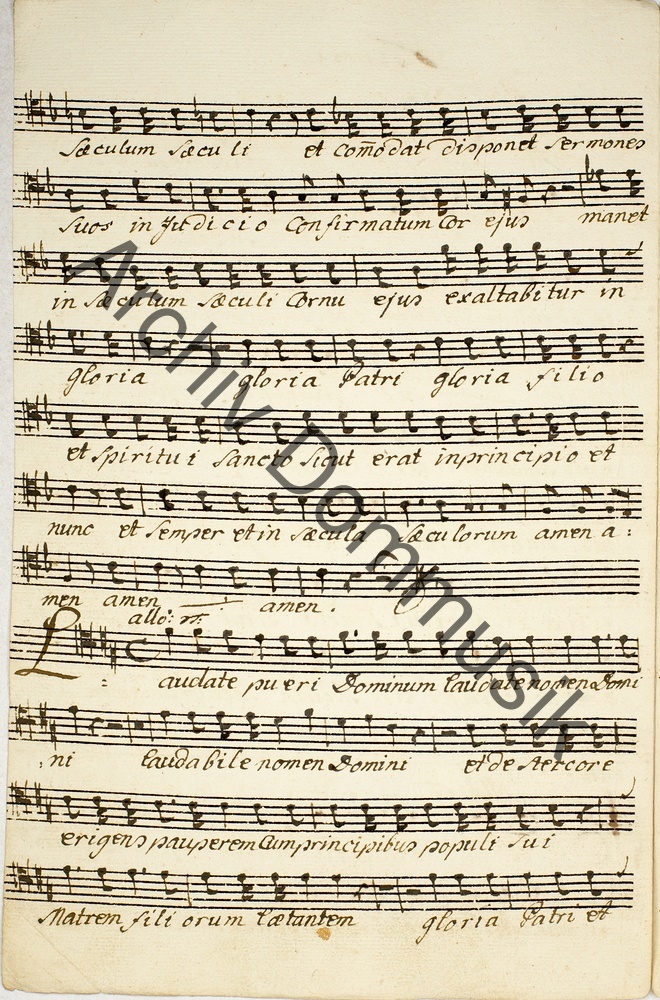 Sæculum Sæculi et Com̄odat disponet Sermones
Suos in Judicio Confirmatum Cor ejus manet
in Sæculum Sæculi Cornu ejus exaltabitur in
gloria gloria Patri gloria filio
et Spiritui Sancto Sicut erat in principio et
nunc et Semper et in Sæcula Sæculorum amen a:
men amen amen.
allo:
Laudate pueri Dominum laudate nomen Domi
:ni laudabile nomen Domini et de Stercore
erigens pauperem Cum principibus populi Sui
Matrem filiorum lætantem gloria Patri et
Archiv Dommusik